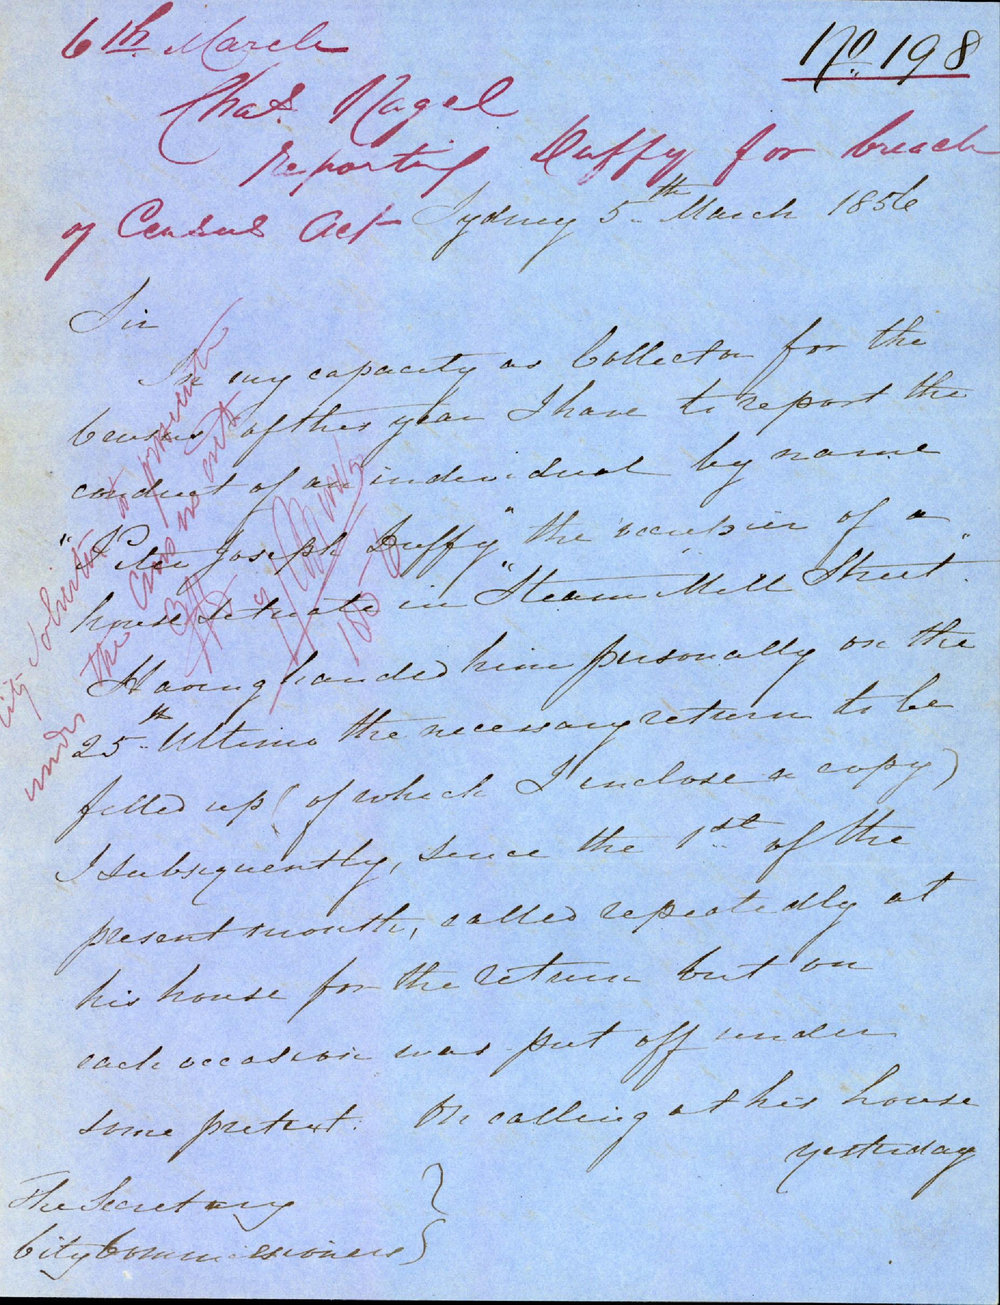 6th March
No. 198
Chas. Nagel
reporting Duffy for breach
of Census Act
Sydney 5th March 1856
Sir
In my capacity as Collector for the
Census of this year I have to report the
conduct of an individual by name
"Peter Joseph Duffy" the occupier of a
house situate in "Steam Mill Street".
Having handed him personally on the
25th Ultimo the necessary return to be
filled up (of which I inclose a copy)
I subsequently, since the 1st of the
present month, called repeatedly at
his house for the return but on
each occasion was put off under
some pretext. On calling at his house
yesterday
The Secretary
City Commissioners
City Solicitor to prosecute
under the